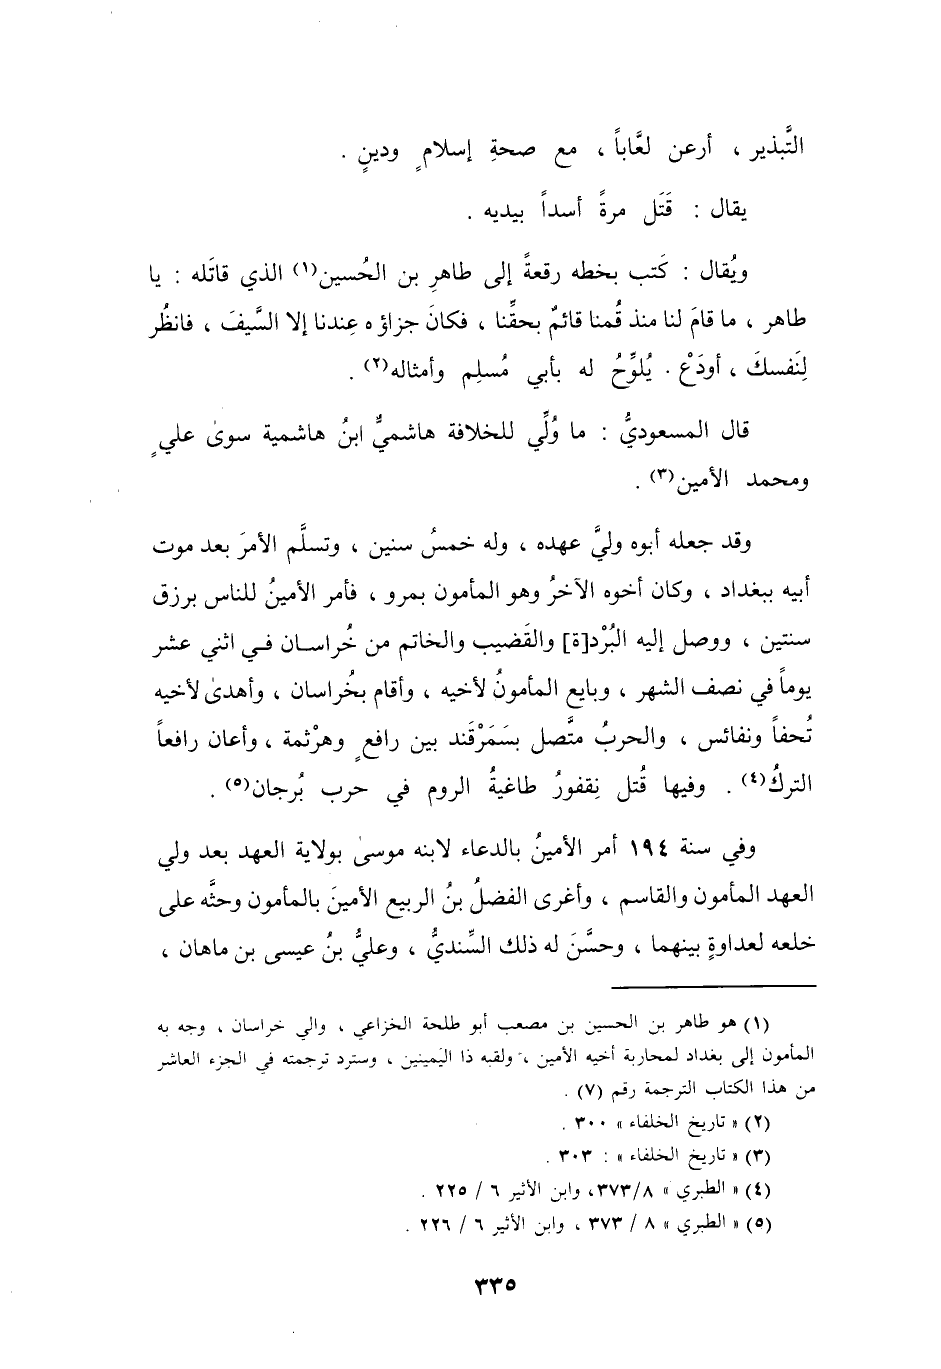 التَّبذير ، أرعن لعَّاباً ، مع صحةِ إسلامٍ ودينٍ .
يقال : قَتَل مرةً أسداً بيديه .
ويُقال : كَتب بخطه رقعةً إلى طاهرِ بن الحُسين(١) الذي قاتَله : يا
طاهر ، ما قامَ لنا منذ قُمنا قائمٌ بحقِّنا ، فكانَ جزاؤه عِندنا إلا السَّيفَ ، فانظُر
لِنَفسكَ ، أودَعْ . يُلوِّحُ له بأبي مُسلِم وأمثاله(٢) .
قال المسعوديُّ : ما وُلِّي للخلافة هاشميٌّ ابنُ هاشمية سوىٰ عليٍ
ومحمد الأمين(٣) .
وقد جعله أبوه وليَّ عهده ، وله خمسُ سنين ، وتسلَّم الأمرَ بعد موت
أبيه ببغداد ، وكان أخوه الآخرُ وهو المأمون بمرو ، فأمر الأمينُ للناس برزق
سنتين ، ووصل إليه البُرْد[ة] والقَضيب والخاتم من خُراسان في اثني عشر
يوماً في نصف الشهر ، وبايع المأمونُ لأخيه ، وأقام بخُراسان ، وأهدىٰ لأخيه
تُحفاً ونفائس ، والحربُ متَّصل بسَمَرْقَند بين رافعٍ وهرْثمة ، وأعان رافعاً
التركُ(٤) . وفيها قُتل نِقفورُ طاغيةُ الروم في حرب بُرجان(٥) .
وفي سنة ١٩٤ أمر الأمينُ بالدعاء لابنه موسىٰ بولاية العهد بعد ولي
العهد المأمون والقاسم ، وأغرى الفضلُ بنُ الربيع الأمينَ بالمأمون وحثَّه على
خلعه لعداوةٍ بينهما ، وحسَّنَ له ذلك السِّنديُّ ، وعليُّ بنُ عيسى بن ماهان ،
(١) هو طاهر بن الحسين بن مصعب أبو طلحة الخزاعي ، والي خراسان ، وجه به
المأمون إلى بغداد لمحاربة أخيه الأمين ، ولقبه ذا اليَمينين ، وسترد ترجمته في الجزء العاشر
من هذا الكتاب الترجمة رقم (٧) .
(٢) « تاريخ الخلفاء » ٣٠٠ .
(٣) « تاريخ الخلفاء » : ٣٠٣ .
(٤) « الطبري » ٨/ ٣٧٣، وابن الأثير ٦ / ٢٢٥ .
(٥) « الطبري » ٨ / ٣٧٣ ، وابن الأثير ٦ / ٢٢٦ .
٣٣٥